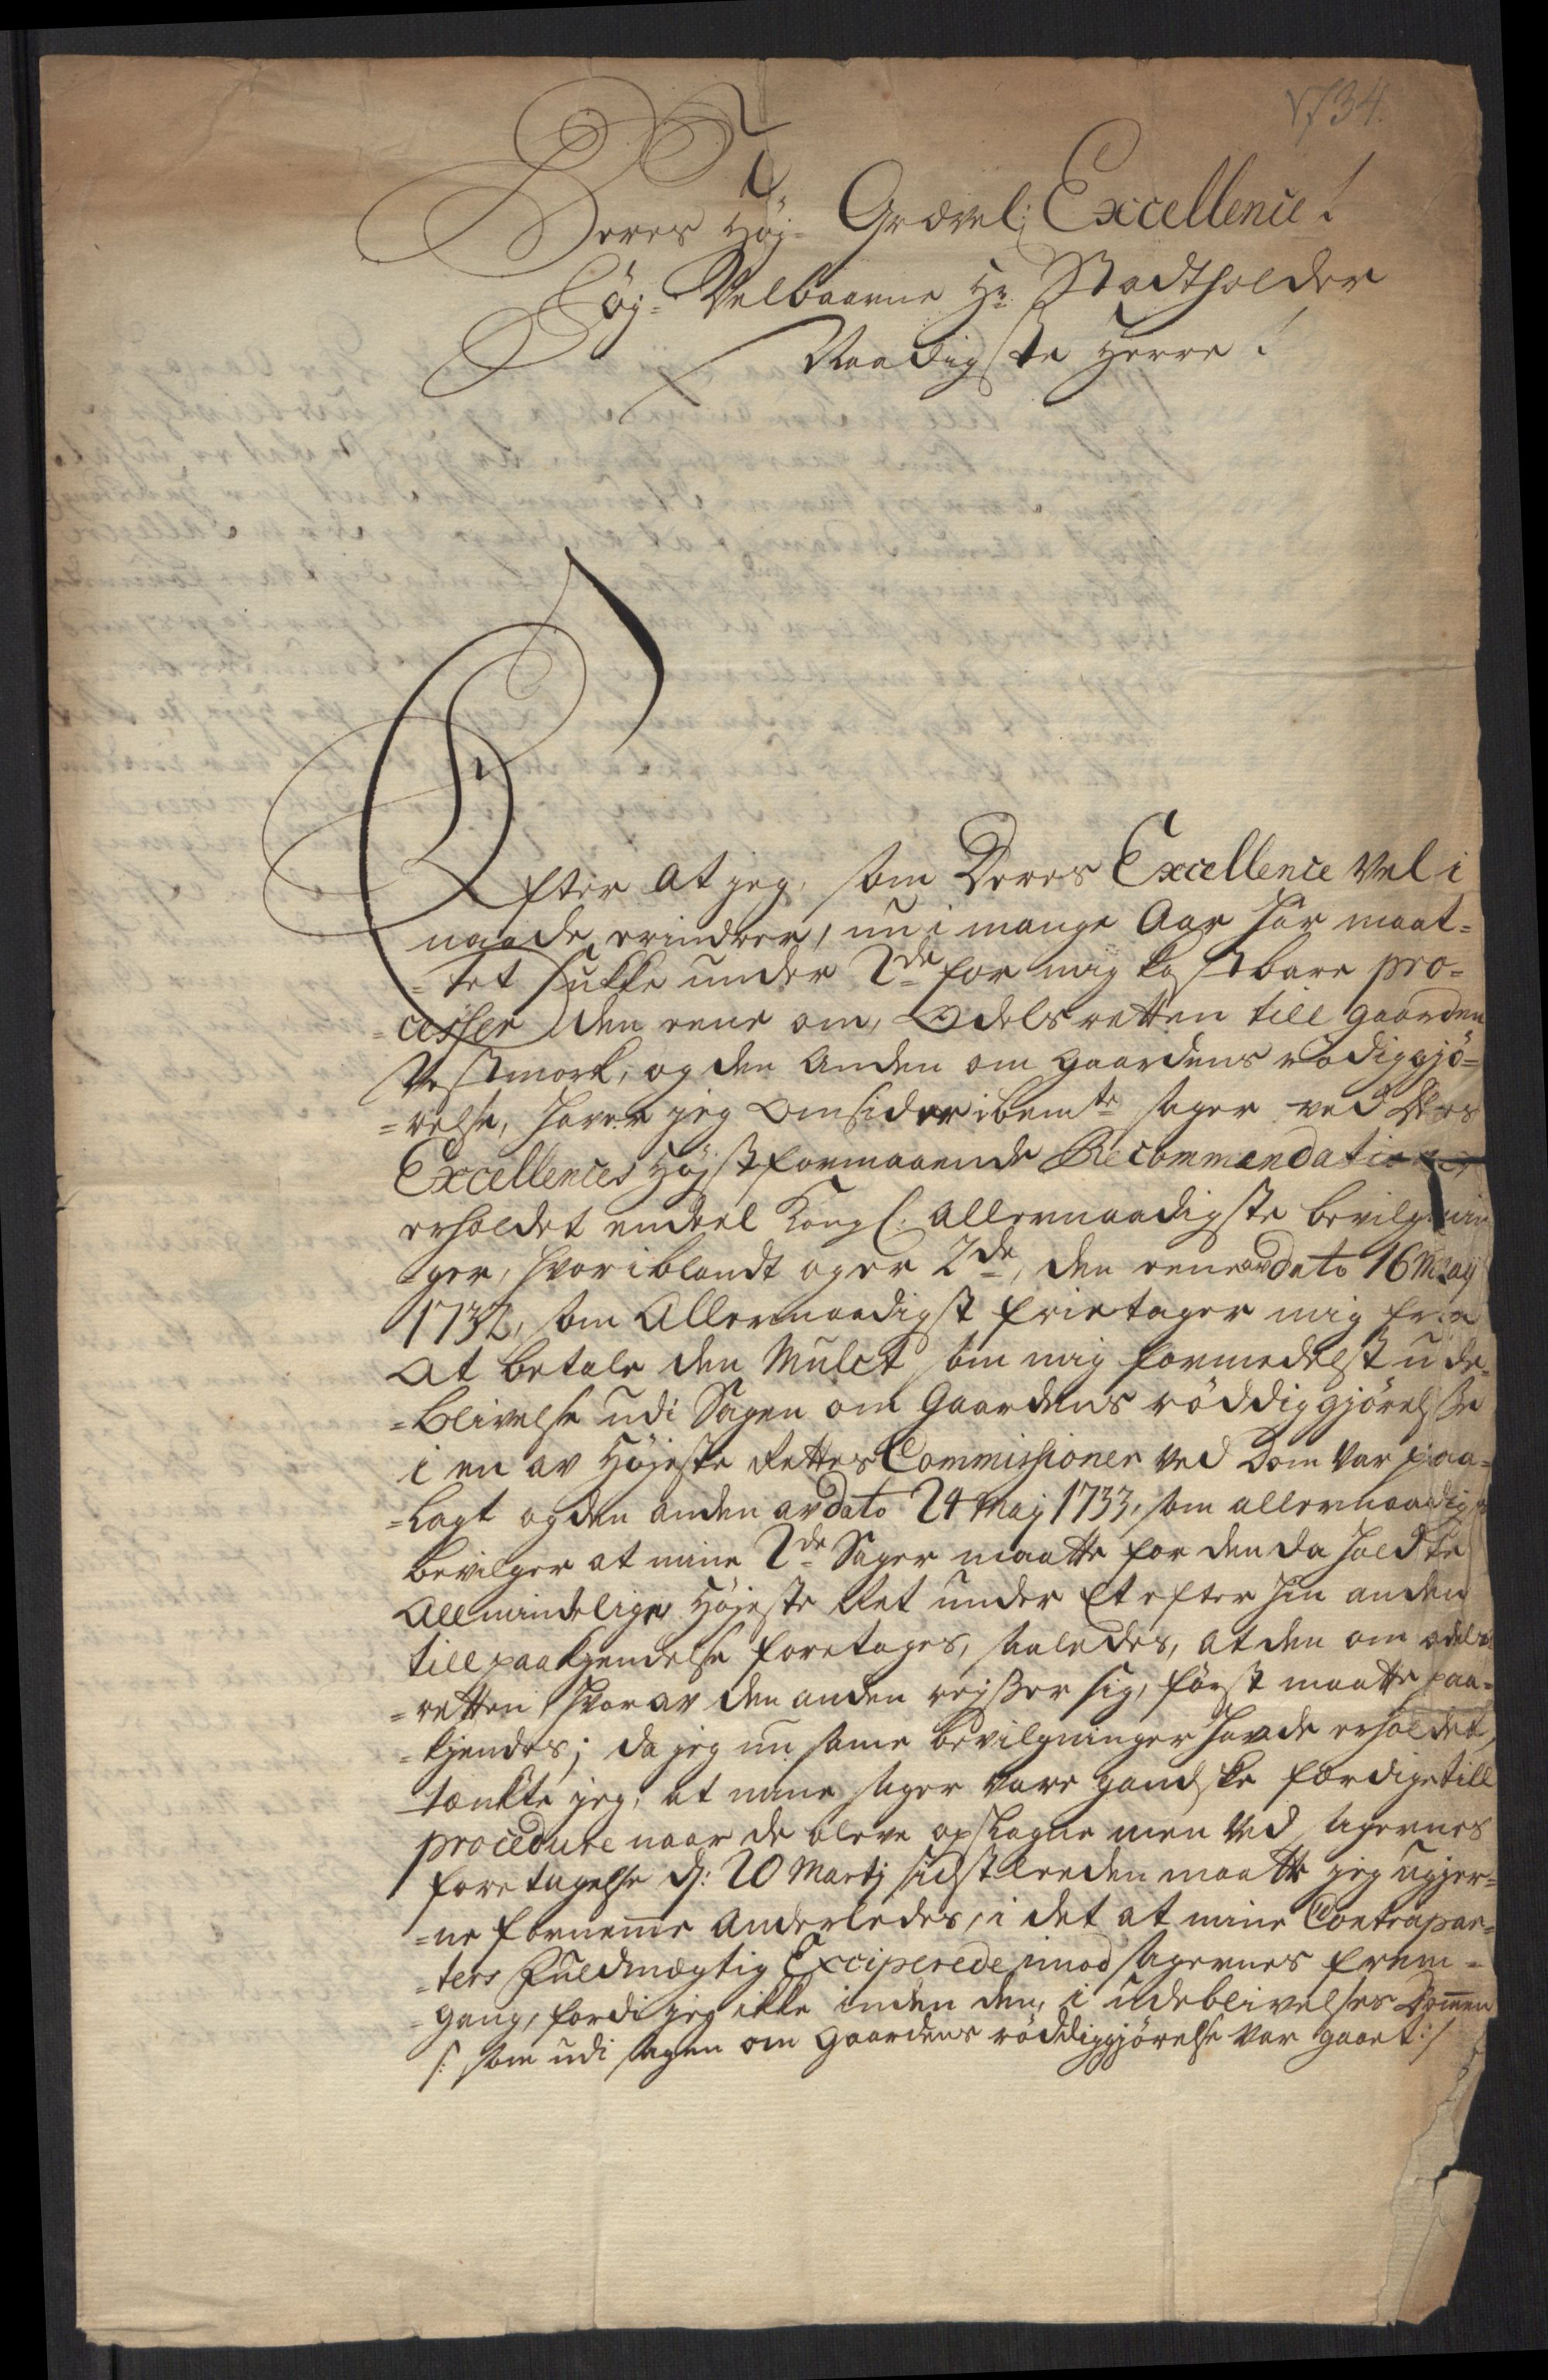 1734.
Deres Høj- Grævel: Excellence!
Høj- Velbaarne Hr: Stadtholder
Naadigste Herre!
Efter At jeg, som Deres Excellence vel i
naade erindrer, nu i mange Aar har maat=
=tet sukke under 2de for mig kostbare pro=
=cesser den eene om, Odelsretten till gaarden
Vestmork, og den Anden om gaardens rødiggjö=
=relse, haver jeg Omsider ibemte sager ved Deres
Excellences Højstformaaende Recommendationer
erholdet endeel Kongl: Allernaadigste bevilgnin
=ger, hvoriblandt og er 2de, den eene av dato 16 May
1732, som Allernaadigst frietager mig fra
At betale den Mulct som mig formedelst ude=
=blivelse udi Sagen om Gaardens röddiggjörelse
i en av Højeste Rettes Commissioner ved Dom var paa=
=lagt og den anden av dato 24 Maj 1733, som allernaadigst
bevilger at mine 2de Sager maatte for den da holdte
Allmindelige Højeste Ret under Et efter hin anden
till paakjendelse foretages, saaledes, at den om odels
=retten hvorav den anden rejser sig, först maatte paa=
=kjendes; da jeg nu same bevilgninger havde erholdet,
tænkte jeg, at mine sager vare gandske færdige till
procedure naar de bleve opslagne men ved sagernes
foretagelse d: 20 Martj sidstleeden maatte jeg ugjer=
=ne fornemme Anderledes, i det at mine Contrapar=
=ters Fuldmægtig Exciperede imod sagernes frem=
=gang, fordi jeg ikke inden den, i udeblivelses Dommen
/: som udi sagen om Gaardens röddiggjörelse var gaaet :/